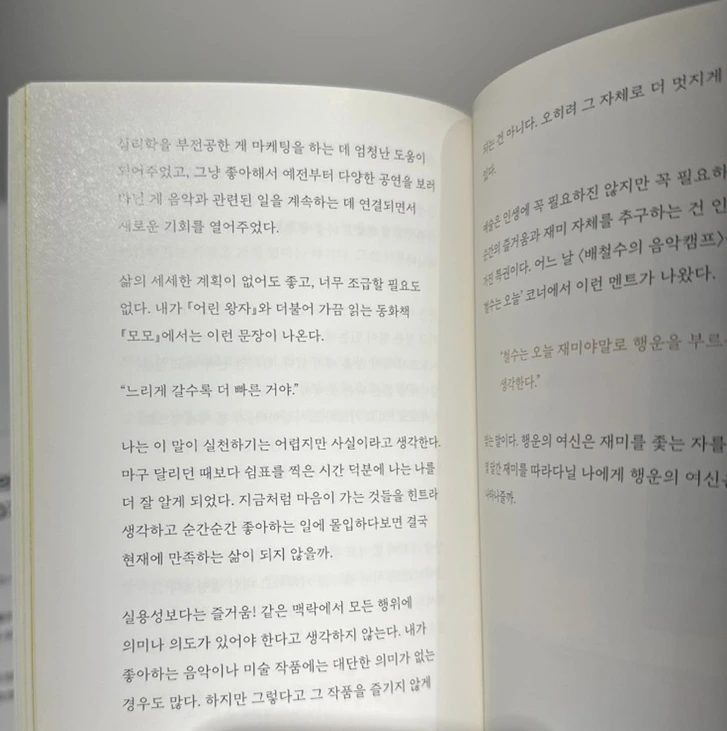 심리학을 부전공한 게 마케팅을 하는 데 엄청난 도움이
되어주었고, 그냥 좋아해서 예전부터 다양한 공연을 보러
다닌 게 음악과 관련된 일을 계속하는 데 연결되면서
새로운 기회를 열어주었다.
삶의 세세한 계획이 없어도 좋고, 너무 조급할 필요도
없다. 내가 『어린 왕자』와 더불어 가끔 읽는 동화책
『모모』에서는 이런 문장이 나온다.
“느리게 갈수록 더 빠른 거야.”
나는 이 말이 실천하기는 어렵지만 사실이라고 생각한다.
마구 달리던 때보다 쉼표를 찍은 시간 덕분에 나는 나를
더 잘 알게 되었다. 지금처럼 마음이 가는 것들을 힌트라
생각하고 순간순간 좋아하는 일에 몰입하다보면 결국
현재에 만족하는 삶이 되지 않을까.
실용성보다는 즐거움! 같은 맥락에서 모든 행위에
의미나 의도가 있어야 한다고 생각하지 않는다. 내가
좋아하는 음악이나 미술 작품에는 대단한 의미가 없는
경우도 많다. 하지만 그렇다고 그 작품을 즐기지 않게
되는 건 아니다. 오히려 그 자체로 더 멋지게
있다.
예술은 인생에 꼭 필요하진 않지만 꼭 필요하
순간의 즐거움과 재미 자체를 추구하는 건 인
가진 특권이다. 어느 날 〈배철수의 음악캠프〉
철수는 오늘’ 코너에서 이런 멘트가 나왔다.
“철수는 오늘 재미야말로 행운을 부르
생각한다.”
맞는 말이다. 행운의 여신은 재미를 좇는 자를
몇 달간 재미를 따라다닐 나에게 행운의 여신은